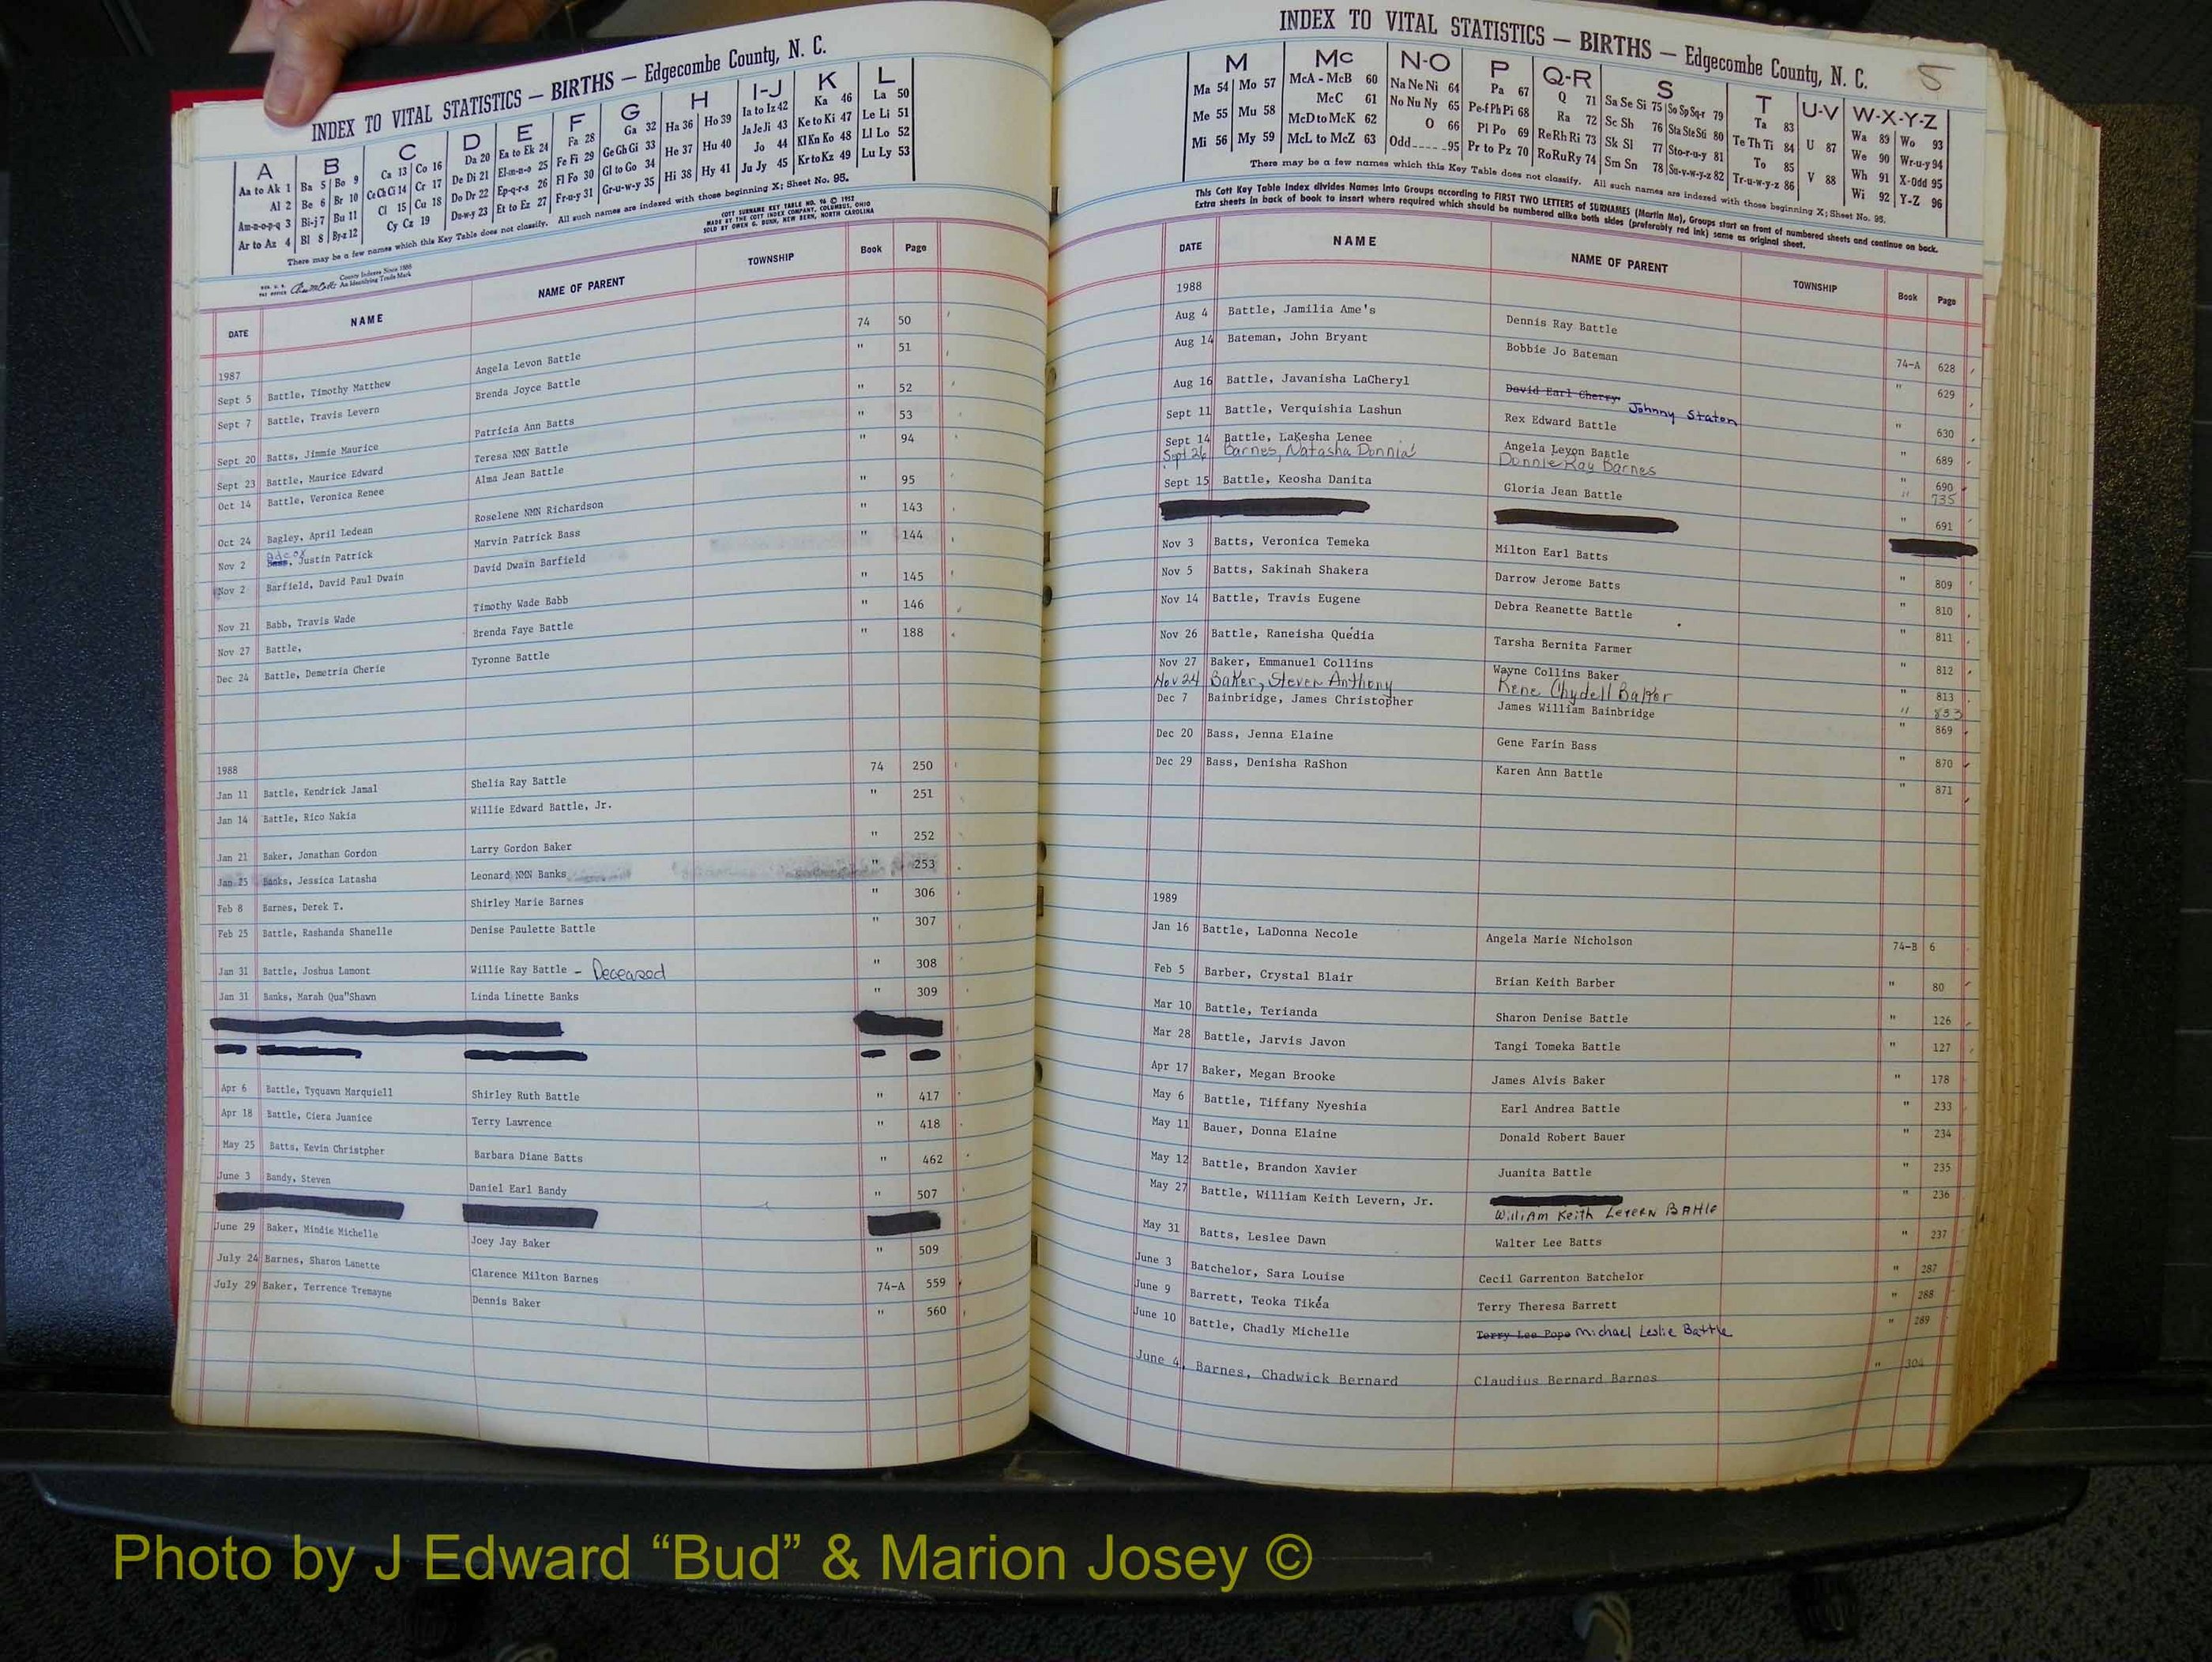 INDEX TO VITAL STATISTICS — BIRTHS — Edgecombe County, N. C.
A B C D E F G H I-J K L
Aa to Ak 1 Ba 5 Bo 9 Ca 13 Co 16 Da 20 Ea to Ek 24 Fa 28 Ga 32 Ha 36 Ho 39 Ia to Iz 42 Ka 46 La 50
Al 2 Be 6 Br 10 Ce Ch Ci 14 Cr 17 De Di 21 El-m-n-o 25 Fe Fi 29 Ge Gh Gi 33 He 37 Hu 40 Ja Je Ji 43 Ke to Ki 47 Le Li 51
Am-n-o-p-q 3 Bi-j 7 Bu 11 Cl 15 Cu 18 Do Dr 22 Ep-q-r-s 26 Fl Fo 30 Gl to Go 34 Hi 38 Hy 41 Jo 44 Kl Kn Ko 48 Ll Lo 52
Ar to Az 4 Bl 8 By-z 12 Cy Cz 19 Du-w-y 23 Et to Ez 27 Fr-u-y 31 Gr-u-w-y 35 Ju Jy 45 Kr to Kz 49 Lu Ly 53
There may be a few names which this Key Table does not classify. All such names are indexed with those beginning X; Sheet No. 95.
COTT SURNAME KEY TABLE NO. 96 © 1952
MADE BY THE COTT INDEX COMPANY, COLUMBUS, OHIO
SOLD BY OWEN G. DUNN, NEW BERN, NORTH CAROLINA
County Indexes Since 1888
An Identifying Trade Mark
DATE NAME NAME OF PARENT TOWNSHIP Book Page
1987
Sept 5 Battle, Timothy Matthew Angela Levon Battle 74 50
Sept 7 Battle, Travis Levern Brenda Joyce Battle " 51
Sept 20 Batts, Jimmie Maurice Patricia Ann Batts " 52
Sept 23 Battle, Maurice Edward Teresa NMN Battle " 53
Oct 14 Battle, Veronica Renee Alma Jean Battle " 94
Oct 24 Bagley, April Ledean Roselene NMN Richardson " 95
Adcox
Nov 2 Bass, Justin Patrick Marvin Patrick Bass " 143
Nov 2 Barfield, David Paul Dwain David Dwain Barfield " 144
Nov 21 Babb, Travis Wade Timothy Wade Babb " 145
Nov 27 Battle, Brenda Faye Battle " 146
Dec 24 Battle, Demetria Cherie Tyronne Battle " 188
1988
Jan 11 Battle, Kendrick Jamal Shelia Ray Battle 74 250
Jan 14 Battle, Rico Nakia Willie Edward Battle, Jr. " 251
Jan 21 Baker, Jonathan Gordon Larry Gordon Baker " 252
Jan 25 Banks, Jessica Latasha Leonard NMN Banks " 253
Feb 8 Barnes, Derek T. Shirley Marie Barnes " 306
Feb 25 Battle, Rashanda Shanelle Denise Paulette Battle " 307
Jan 31 Battle, Joshua Lamont Willie Ray Battle - Deceased " 308
Jan 31 Banks, Marah Qua"Shawn Linda Linette Banks " 309
Apr 6 Battle, Tyquawn Marquiell Shirley Ruth Battle " 417
Apr 18 Battle, Ciera Juanice Terry Lawrence " 418
May 25 Batts, Kevin Christpher Barbara Diane Batts " 462
June 3 Bandy, Steven Daniel Earl Bandy " 507
June 29 Baker, Mindie Michelle Joey Jay Baker " 509
July 24 Barnes, Sharon Lanette Clarence Milton Barnes 74-A 559
July 29 Baker, Terrence Tremayne Dennis Baker " 560
INDEX TO VITAL STATISTICS — BIRTHS — Edgecombe County, N. C. 5
M Mc N-O P Q-R S T U-V W-X-Y-Z
Ma 54 Mo 57 McA - McB 60 Na Ne Ni 64 Pa 67 Q 71 Sa Se Si 75 So Sp Sq-r 79 Ta 83 U 87 Wa 89 Wo 93
Me 55 Mu 58 McC 61 No Nu Ny 65 Pe-f Ph Pi 68 Ra 72 Sc Sh 76 Sta Ste Sti 80 Te Th Ti 84 V 88 We 90 Wr-u-y 94
Mi 56 My 59 McD to McK 62 O 66 Pl Po 69 Re Rh Ri 73 Sk Sl 77 Sto-r-u-y 81 To 85 Wh 91 X-Odd 95
McL to McZ 63 Odd 95 Pr to Pz 70 Ro Ru Ry 74 Sm Sn 78 Su-v-w-y-z 82 Tr-u-w-y-z 86 Wi 92 Y-Z 96
There may be a few names which this Key Table does not classify. All such names are indexed with those beginning X; Sheet No. 95.
This Cott Key Table Index divides Names into Groups according to FIRST TWO LETTERS of SURNAMES (Martin Ma), Groups start on front of numbered sheets and continue on back.
Extra sheets in back of book to insert where required which should be numbered alike both sides (preferably red ink) same as original sheet.
DATE NAME NAME OF PARENT TOWNSHIP Book Page
1988
Aug 4 Battle, Jamilia Ame's Dennis Ray Battle 74-A 628
Aug 14 Bateman, John Bryant Bobbie Jo Bateman " 629
Aug 16 Battle, Javanisha LaCheryl David Earl Cherry Johnny Staton " 630
Sept 11 Battle, Verquishia Lashun Rex Edward Battle " 689
Sept 14 Battle, LaKesha Lenee Angela Levon Battle " 690
Sept 26 Barnes, Natasha Donnia Donnie Ray Barnes " 735
Sept 15 Battle, Keosha Danita Gloria Jean Battle " 691
Nov 3 Batts, Veronica Temeka Milton Earl Batts " 809
Nov 5 Batts, Sakinah Shakera Darrow Jerome Batts " 810
Nov 14 Battle, Travis Eugene Debra Reanette Battle " 811
Nov 26 Battle, Raneisha Quedia Tarsha Bernita Farmer " 812
Nov 27 Baker, Emmanuel Collins Wayne Collins Baker " 813
Nov 24 Baker, Steven Anthony Rene Chydell Baker " 833
Dec 7 Bainbridge, James Christopher James William Bainbridge " 869
Dec 20 Bass, Jenna Elaine Gene Farin Bass " 870
Dec 29 Bass, Denisha RaShon Karen Ann Battle " 871
1989
Jan 16 Battle, LaDonna Necole Angela Marie Nicholson 74-B 6
Feb 5 Barber, Crystal Blair Brian Keith Barber " 80
Mar 10 Battle, Terianda Sharon Denise Battle " 126
Mar 28 Battle, Jarvis Javon Tangi Tomeka Battle " 127
Apr 17 Baker, Megan Brooke James Alvis Baker " 178
May 6 Battle, Tiffany Nyeshia Earl Andrea Battle " 233
May 11 Bauer, Donna Elaine Donald Robert Bauer " 234
May 12 Battle, Brandon Xavier Juanita Battle " 235
May 27 Battle, William Keith Levern, Jr. " 236
William Keith Levern Battle
May 31 Batts, Leslee Dawn Walter Lee Batts " 237
June 3 Batchelor, Sara Louise Cecil Garrenton Batchelor " 287
June 9 Barrett, Teoka Tikéa Terry Theresa Barrett " 288
June 10 Battle, Chadly Michelle Terry Lee Pope Michael Leslie Battle " 289
June 4 Barnes, Chadwick Bernard Claudius Bernard Barnes " 304
Photo by J Edward “Bud” & Marion Josey ©